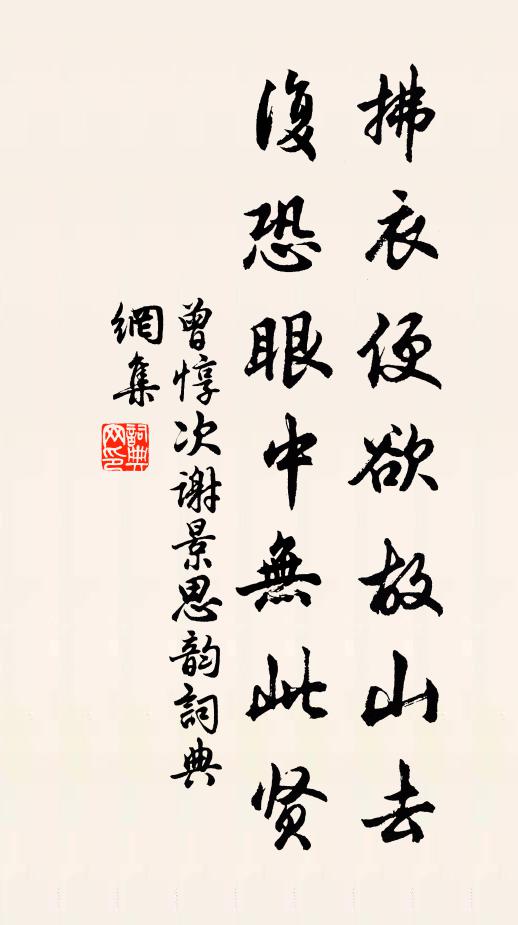 拂衣便欲故山去
復恐眼中無此贤
曾惇次谢景思韵詞典
網集
詞典
网印